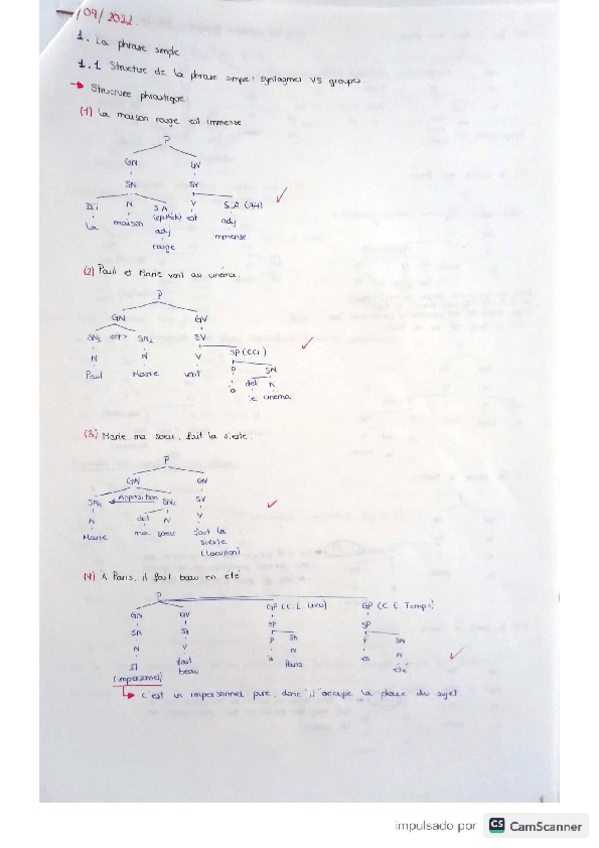 /09/2022
1. La phrase simple
1.1 Structure de la phrase simple: syntagmes VS groupes
→ Structure phrastique
(1) La maison rouge est immense.
P
GN GV
SN SV
N SA V S.A (Att)
La maison (épith) est adj
adj immense
rouge
(2) Paul et Marie vont au cinéma.
P
GN GV
SN1 <et> SN2 SV
N N V SP (CC)
Paul Marie vont P SN
à det N
le cinéma
(3) Marie, ma sœur, fait la sieste.
P
GN GV
SN1 Apposition SN2 SV
N det N V
Marie ma sœur fait la
sieste
(locution)
(4) À Paris, il fait beau en été
P
GN GV GP (C.C. Lieu) GP (C.C. Temps)
SN SV SP SP
N V P SN P SN
Il fait à N N
(impersonnel) beau Paris été
→ C'est un impersonnel pure, donc "il" occupe la place du sujet
impulsado por CS CamScanner